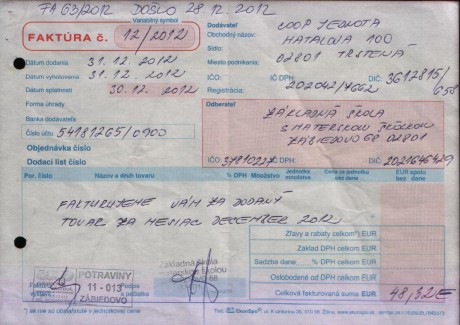 FA 63/2012 DOŠLO 28.12.2012
Variabilný symbol
FAKTÚRA č. 12/2012
Dodávateľ
Obchodný názov: COOP JEDNOTA
Sídlo: HATTALOVA 100
Miesto podnikania: 02801 TRSTENÁ
Dátum dodania 31.12.2012
Dátum vyhotovenia 31.12.2012
Dátum splatnosti 30.12.2012
IČO: IČ DPH: DIČ: 3612815/658
Registrácia: 202042/4662
Forma úhrady
Banka dodávateľa
Číslo účtu 54181265/0900
Objednávka číslo
Dodací list číslo
Odberateľ
ZÁKLADNÁ ŠKOLA
S MATERSKOU ŠKOLOU
ZÁBIEDOVO 68 02801
IČO: 37810227 DPH: DIČ: 2021646429
Por. číslo Názov a druh tovaru % DPH Množstvo Jednotkové množstvo Cena za jednotku bez dane EUR spolu bez dane
FAKTURUJEME VÁM ZA DODANÝ
TOVAR ZA MESIAC DECEMBER 2012
Zľavy a rabaty celkom*) EUR
Základ DPH celkom EUR
Sadzba dane % DPH celkom EUR
Oslobodené od DPH celkom EUR
Celková fakturovaná suma EUR 48,32 €
POTRAVINY
11 - 013
ZÁBIEDOVO
Základná škola
s materskou školou